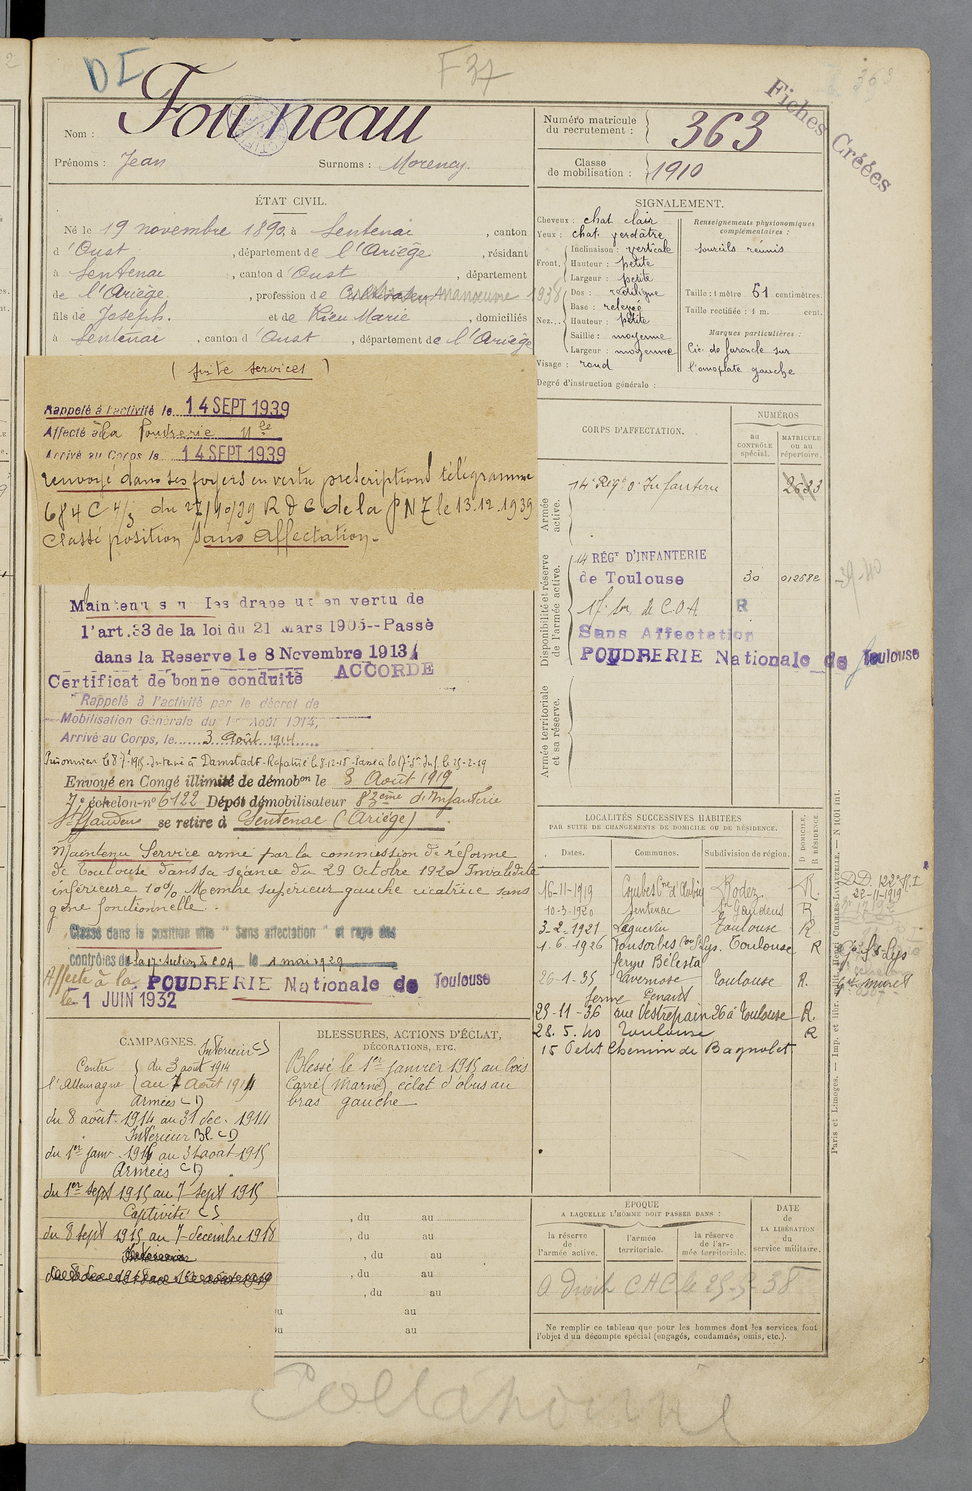 DI
F 37
363
Fiches Créées
Nom : Fourneau
Prénoms : Jean Surnoms : Morency.
Numéro matricule du recrutement : 363
Classe de mobilisation : 1910
ÉTAT CIVIL.
Né le 19 novembre 1890, à Sentenac, canton
d'Oust, département de l'Ariège, résidant
à Sentenac, canton d'Oust, département
de l'Ariège, profession de Cultivateur manœuvre 1938
fils de Joseph. et de Rieu Marie, domiciliés
à Sentenac, canton d'Oust, département de l'Ariège
SIGNALEMENT.
Cheveux : chat. clair
Yeux : chat. verdâtre
Front. Inclinaison : verticale
Hauteur : petite
Largeur : petite
Nez... Dos : rectiligne
Base : relevée
Hauteur : petite
Saillie : moyenne
Largeur : moyenne
Visage : rond
Renseignements physionomiques complémentaires :
sourcils réunis
Taille : 1 mètre 61 centimètres.
Taille rectifiée : 1 m. cent.
Marques particulières :
Cic. de furoncle sur
l'omoplate gauche
Degré d'instruction générale :
(suite services)
Rappelé à l'activité le 14 SEPT 1939
Affecté à la Poudrerie Nle
Arrivé au Corps le 14 SEPT 1939
renvoyé dans ses foyers en vertu prescriptions télégramme
684 C 4/3 du 27/10/39 R D C de la PNT le 13.12.1939
Classé position sans affectation.
Maintenu sous les drapeaux en vertu de
l'art. 33 de la loi du 21 Mars 1905--Passé
dans la Reserve le 8 Novembre 1913
Certificat de bonne conduite ACCORDE
Rappelé à l'activité par le décret de
Mobilisation Générale du 1er Août 1914,
Arrivé au Corps, le 3 Août 1914
Prisonnier le 8 7bre 1915 - Interné à Damstadt - Rapatrié le 8-12-18 - Passé à
Envoyé en Congé illimité de démobon le 3 Août 1919
7e échelon - no 6122 Dépôt démobilisateur 83ème d'Infanterie
St Gaudens se retire à Sentenac (Ariège)
Maintenu Service armé par la commission de réforme
de Toulouse dans sa séance du 29 Octobre 1920 Invalidité
inférieure 10% Membre supérieur gauche cicatrice sans
gêne fonctionnelle.
Classé dans la position dite "Sans affectation" et rayé des
contrôles de la 17e Section de COA le 1 mai 1929
Affecté à la POUDRERIE Nationale de Toulouse
le 1 JUIN 1932
CORPS D'AFFECTATION.
NUMÉROS
au CONTRÔLE spécial.
MATRICULE ou au répertoire.
Armée active.
14e Regt d'Infanterie 2633
Disponibilité et réserve de l'armée active.
14 RÉGT D'INFANTERIE
de Toulouse 30 012682
17e Son de C.O.A R
Sans Affectation
POUDRERIE Nationale de Toulouse
Armée territoriale et sa réserve.
LOCALITÉS SUCCESSIVES HABITÉES
PAR SUITE DE CHANGEMENTS DE DOMICILE OU DE RÉSIDENCE.
Dates. Communes. Subdivision de région. D. DOMICILE, R. RÉSIDENCE
16-11-1919 Rodez R.
10-3-1920 Sentenac St Gaudens R
3-2-1921 Toulouse R
1.6.1926 Fonsorbes Con St Lys. Toulouse R
ferme Bélesta
26-1-35 Lavernose Toulouse R.
ferme
29-11-36 rue Vestrepain 26 à Toulouse R.
28.5.40 Toulouse R
15 Petit Chemin de Bagnolet
D.D. 122e R.I
22-11-1919
Con St Lys
Con Muret
CAMPAGNES.
Intérieur CS
Contre l'Allemagne du 3 août 1914
au 7 Août 1914
Armées CD
du 8 août 1914 au 31 dec. 1914
Intérieur Bl. CD
du 1er janv 1915 au 31 août 1915
Armées CD
du 1er sept 1915 au 7 sept 1915
Captivité CS
du 8 sept 1915 au 7 décembre 1918
Intérieur
BLESSURES, ACTIONS D'ÉCLAT,
DÉCORATIONS, ETC.
Blessé le 1er janvier 1915 au bois
Carré (Marne) éclat d'obus au
bras gauche
, du au
, du au
, du au
, du au
, du au
du au
du au
ÉPOQUE
A LAQUELLE L'HOMME DOIT PASSER DANS :
la réserve de l'armée active.
l'armée territoriale.
la réserve de l'armée territoriale.
DATE de LA LIBÉRATION du service militaire.
a droit CAC le 25-5-38
Ne remplir ce tableau que pour les hommes dont les services font
l'objet d'un décompte spécial (engagés, condamnés, omis, etc.).
Paris et Limoges. — Imp. et libr. milit. Henri CHARLES-LAVAUZELLE.